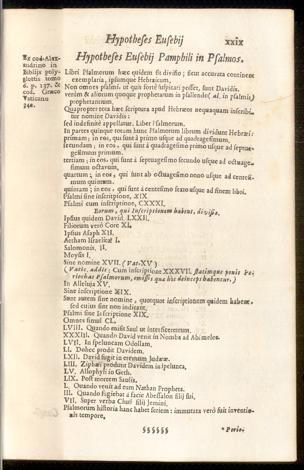 Hypotheses Eusebij
XXIX
Hypotheses Eusebij Pamphili in Psalmos.
Ex cod. Alexandrino in
Biblijs polyglottis tomo
6. p. 137. &
cod. Græco
Vaticano
342.
Libri Psalmorum hæc quidem sit divisio; sicut accurata continent
exemplaria, ipsumque Hebraicum.
Non omnes psalmi, ut quis fortè suspicari posset, sunt Davidis,
verùm & aliorum quoque prophetarum in psallendo( al. in psalmis)
prophetantium.
Quapropter tota hæc scriptura apud Hebræos nequaquam inscribitur
nomine Davidis:
sed indefinitè appellatur, Liber Psalmorum.
In partes quinque totum hunc Psalmorum librum dividunt Hebræi:
primam; in eos, qui sunt à primo usque ad quadragesimum,
secundam; in eos, qui sunt à quadragesimo primo usque ad septuagesimum
primum.
tertiam; in eos, qui sunt à septuagesimo secundo usque ad octuagesimum
octavum,
quartam; in eos, qui sunt ab octuagesimo nono usque ad centesimum
quintum.
quintam; in eos, qui sunt à centesimo sexto usque ad finem libri.
Psalmi sine inscriptione, XIX.
Psalmi cum inscriptione, CXXXI.
Eorum, qui Inscriptionem habent, divisio.
Ipsius quidem David. LXXII.
Filiorum verò Core XI.
Ipsius Asaph XII.
Aetham Israelitæ I.
Salomonis. II.
Moysis I.
Sine nomine XVII. (Vat. XV)
In Alleluja XV.
Sine inscriptione XIX.
Sunt autem sine nomine, quotquot inscriptionem quidem habent,
sed cujus sint non indicant.
Psalmi sine Inscriptione XIX.
Omnes simul CL.
LVIII. Quando misit Saul ut interficeretur.
XXXIII. Quando David venit in Nomba ad Abimelec.
LVI. In speluncam Odollam,
LI. Dohec prodit Davidem.
LXII. David fugit in eremum Judææ.
LIII. Ziphæi produnt Davidem in spelunca,
LV. Allophyli in Geth.
LIX. Post mortem Saulis.
L. Quando venit ad eum Nathan Propheta.
III. Quando fugiebat à facie Abessalon filij sui,
VII. Super verba Chusi filij Jemini,
Psalmorum historia hanc habet seriem: immutata verò fuit inventionis
tempore,
§§§§§§
* Porio-